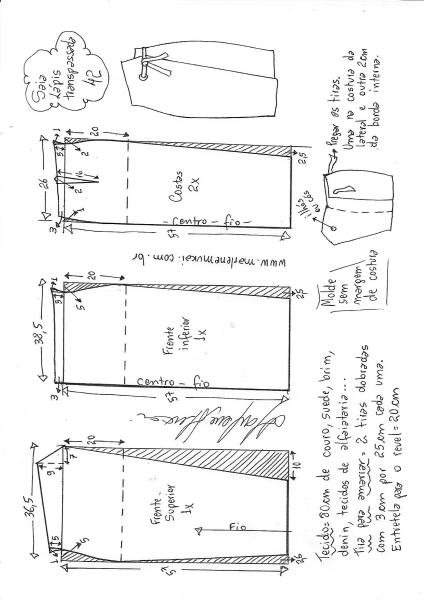 Saia
lápis
transpassada
42
36,5
9
1
5
5
7
20
57
Frente
Superior
1x
Fio
10
2,5
38,5
3
1
5
5
20
57
Frente
inferior
1x
centro - fio
2,5
www.marlenemukai.com.br
26
3
1
1
5
2
2
20
57
Costas
2x
centro - fio
2,5
Tecido = 80cm de couro, suede, brim,
denin, tecidos de alfaiataria...
Tira para amarrar = 2 tiras dobradas
com 3cm por 25cm cada uma.
Entretela para o revel = 20cm
Molde
sem
margem
de costura
ilhós
ou cós
Pregar as tiras.
Uma na costura da
lateral e outra 2cm
da borda interna.